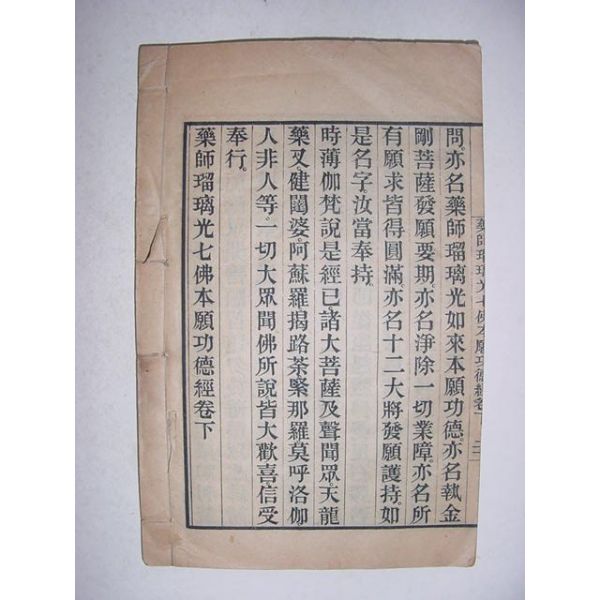 藥師瑠璃光七佛本願功德經卷下
問。亦名藥師瑠璃光如來本願功德。亦名執金
剛菩薩發願要期。亦名淨除一切業障。亦名所
有願求皆得圓滿。亦名十二大將發願護持。如
是名字。汝當奉持。
時薄伽梵說是經已。諸大菩薩及聲聞眾。天龍
藥叉。健闥婆。阿蘇羅。揭路茶。緊那羅。莫呼洛伽。
人非人等。一切大眾。聞佛所說。皆大歡喜。信受
奉行。
藥師瑠璃光七佛本願功德經卷下